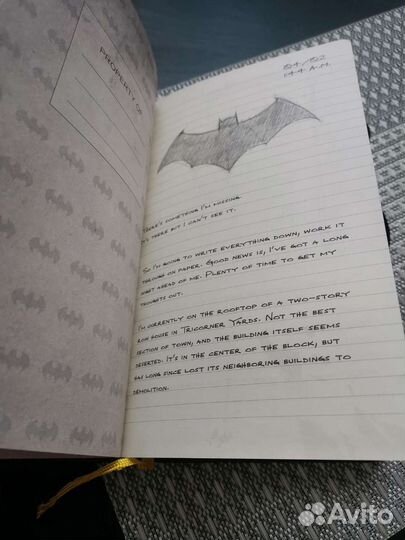 PROPERTY OF
1:44 A.M.
THERE'S SOMETHING I'M MISSING.
IT'S THERE BUT I CAN'T SEE IT.
SO I'M GOING TO WRITE EVERYTHING DOWN, WORK IT
THROUGH ON PAPER. GOOD NEWS IS, I'VE GOT A LONG
NIGHT AHEAD OF ME. PLENTY OF TIME TO GET MY
THOUGHTS OUT.
I'M CURRENTLY ON THE ROOFTOP OF A TWO-STORY
ROW HOUSE IN TRICORNER YARDS. NOT THE BEST
SECTION OF TOWN, AND THE BUILDING ITSELF SEEMS
DESERTED. IT'S IN THE CENTER OF THE BLOCK, BUT
HAS LONG SINCE LOST ITS NEIGHBORING BUILDINGS TO
DEMOLITION.
Avito